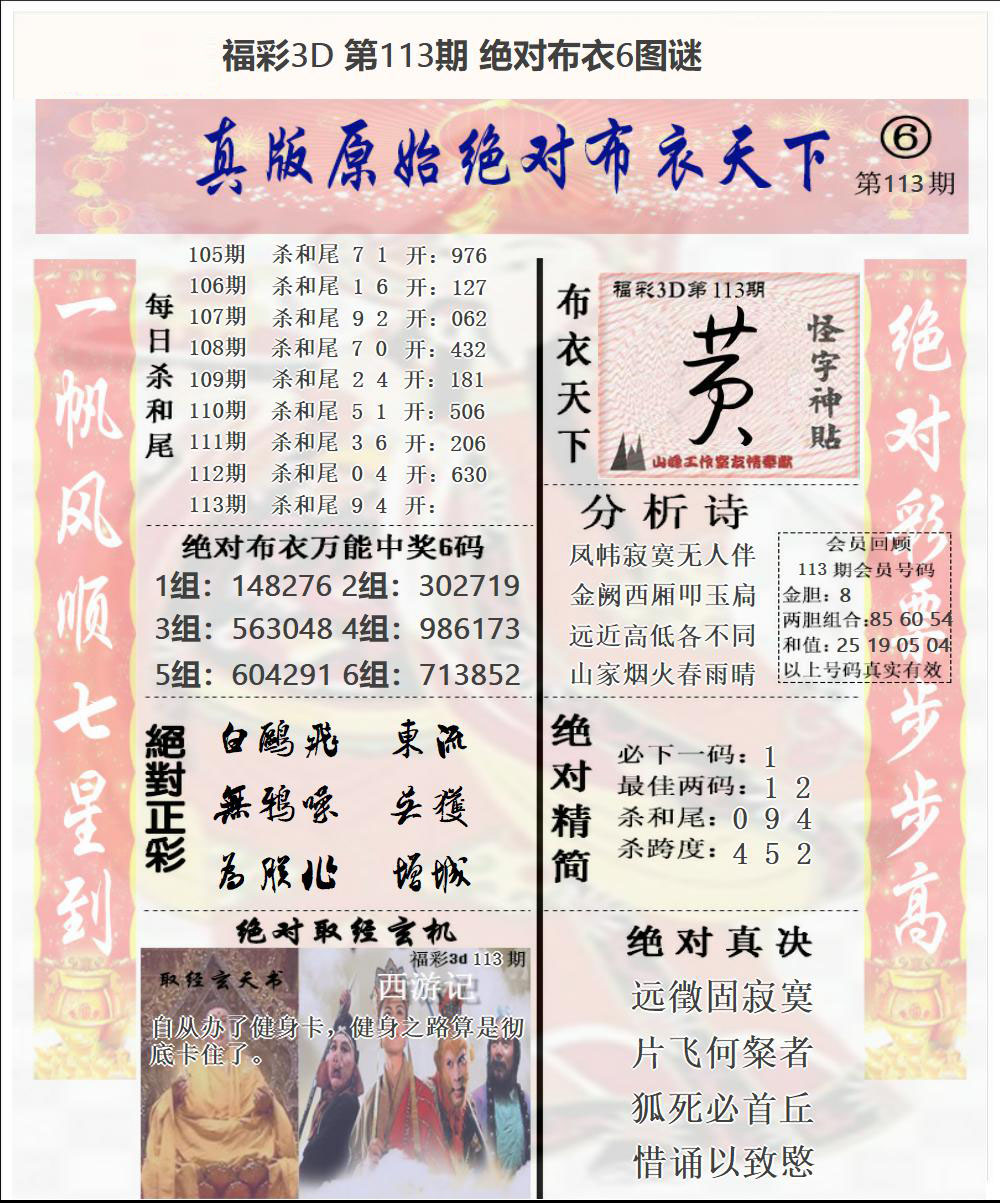 福彩3D 第113期 绝对布衣6图谜
真版原始绝对布衣天下
⑥
第113期
一帆风顺七星到
每日杀和尾
105期 杀和尾 7 1 开：976
106期 杀和尾 1 6 开：127
107期 杀和尾 9 2 开：062
108期 杀和尾 7 0 开：432
109期 杀和尾 2 4 开：181
110期 杀和尾 5 1 开：506
111期 杀和尾 3 6 开：206
112期 杀和尾 0 4 开：630
113期 杀和尾 9 4 开：
绝对布衣万能中奖6码
1组：148276 2组：302719
3组：563048 4组：986173
5组：604291 6组：713852
絕對正彩
白鷗飛 東流
無鴉喙 獲
為 增城
绝对取经玄机
福彩3d 113 期
取经玄天书
西游记
自从办了健身卡，健身之路算是彻
底卡住了。
布衣天下
福彩3D第113期
怪字神貼
山峰工作室友情奉献
分析诗
凤帏寂寞无人伴
金阙西厢叩玉扃
远近高低各不同
山家烟火春雨晴
会员回顾
113 期会员号码
金胆：8
两胆组合:85 60 54
和值：25 19 05 04
以上号码真实有效
绝对精简
必下一码：1
最佳两码：1 2
杀和尾：0 9 4
杀跨度：4 5 2
绝对真决
远徵固寂寞
片飞何粲者
狐死必首丘
惜诵以致愍
绝对彩票步步高